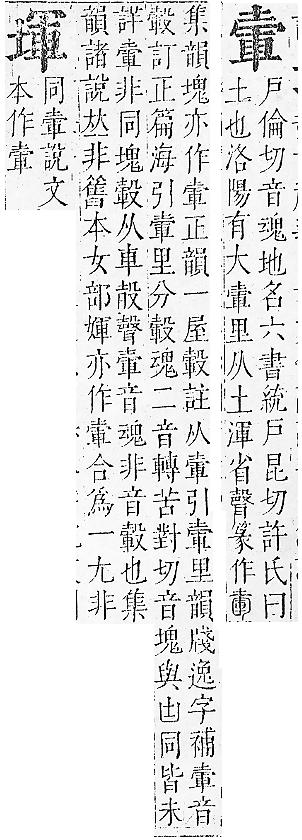 戶倫切音魂地名六書統戶昆切許氏曰
土也洛陽有大里从土渾省聲篆作
集韻塊亦作正韻一屋轂註从引里韻牋逸字補音
轂訂正篇海引里分轂魂二音轉苦對切音塊與凷同皆未
詳非同塊轂从車㱿聲音魂非音轂也集
韻諸說𠀤非舊本女部媈亦作合爲一尤非
堚
同說文
本作